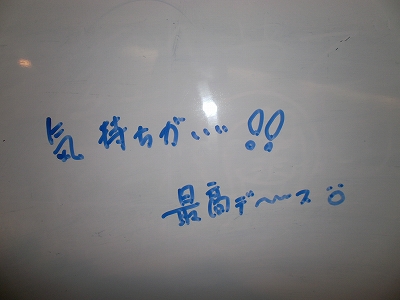 気持ちがいい!!
最高デ〜〜ス